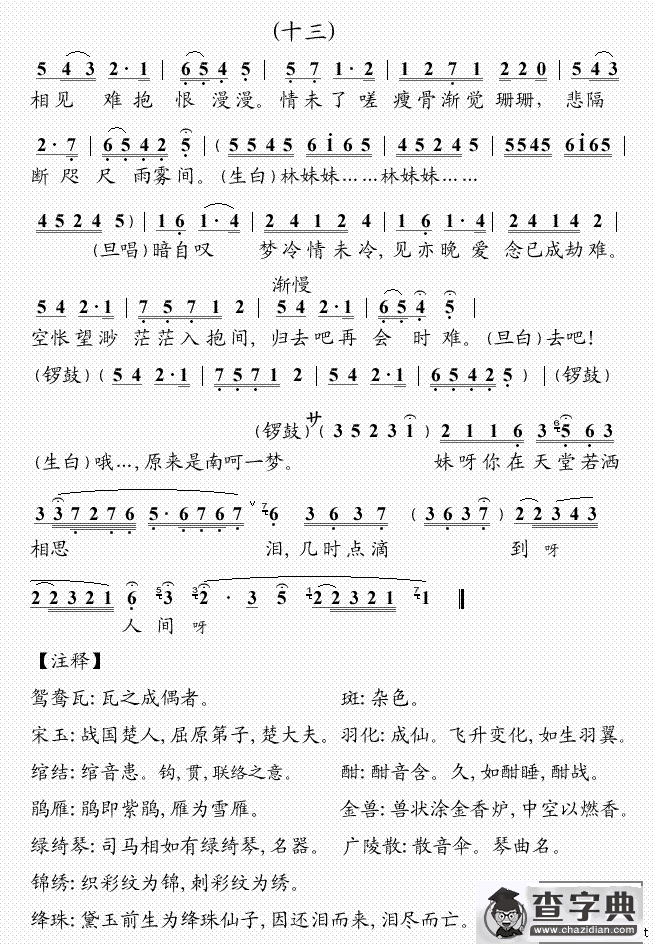 (十三)
5 4 3 2·1 | 6 5 4 5 | 5 7 1·2 | 1 2 7 1 2 2 0 | 5 4 3
相见 难抱 恨 漫漫。情未了 嗟 瘦骨渐觉 珊珊, 悲隔
2·7 | 6 5 4 2 5 | (5 5 4 5 6 1 6 5 | 4 5 2 4 5 | 5545 6165 |
断 咫 尺 雨雾间。(生白)林妹妹……林妹妹……
4 5 2 4 5) | 1 6 1·4 | 2 4 1 2 4 | 1 6 1·4 | 2 4 1 4 2 |
(旦唱)暗自叹 梦冷情未冷,见亦晚 爱 念已成劫难。
渐慢
5 4 2·1 | 7 5 7 1 2 | 5 4 2·1 | 6 5 4 5 |
空怅望渺 茫茫入抱间, 归去吧再 会 时难。(旦白)去吧!
(锣鼓)(5 4 2·1 | 7 5 7 1 2 | 5 4 2·1 | 6 5 4 2 5) | (锣鼓)
(锣鼓)サ(3 5 2 3 1) 2 1 1 6 3 6 5 6 3
(生白)哦…,原来是南呵一梦。 妹呀你在天堂若洒
3 3 7 2 7 6 5·6 7 6 7 ∨ 7 6 3 6 3 7 (3 6 3 7) 2 2 3 4 3
相思 泪,几时点滴 到 呀
2 2 3 2 1 6 5 3 3 2·3 5 1 2 2 3 2 1 7 1
人 间 呀
【注释】
鸳鸯瓦:瓦之成偶者。 斑:杂色。
宋玉:战国楚人,屈原第子,楚大夫。 羽化:成仙。飞升变化,如生羽翼。
绾结:绾音患。钩,贯,联络之意。 酣:酣音含。久,如酣睡,酣战。
鹃雁:鹃即紫鹃,雁为雪雁。 金兽:兽状涂金香炉,中空以燃香。
绿绮琴:司马相如有绿绮琴,名器。 广陵散:散音伞。琴曲名。
锦绣:织彩纹为锦,刺彩纹为绣。
绛珠:黛玉前生为绛珠仙子,因还泪而来,泪尽而亡。
查字典
www.chazidian.com
t